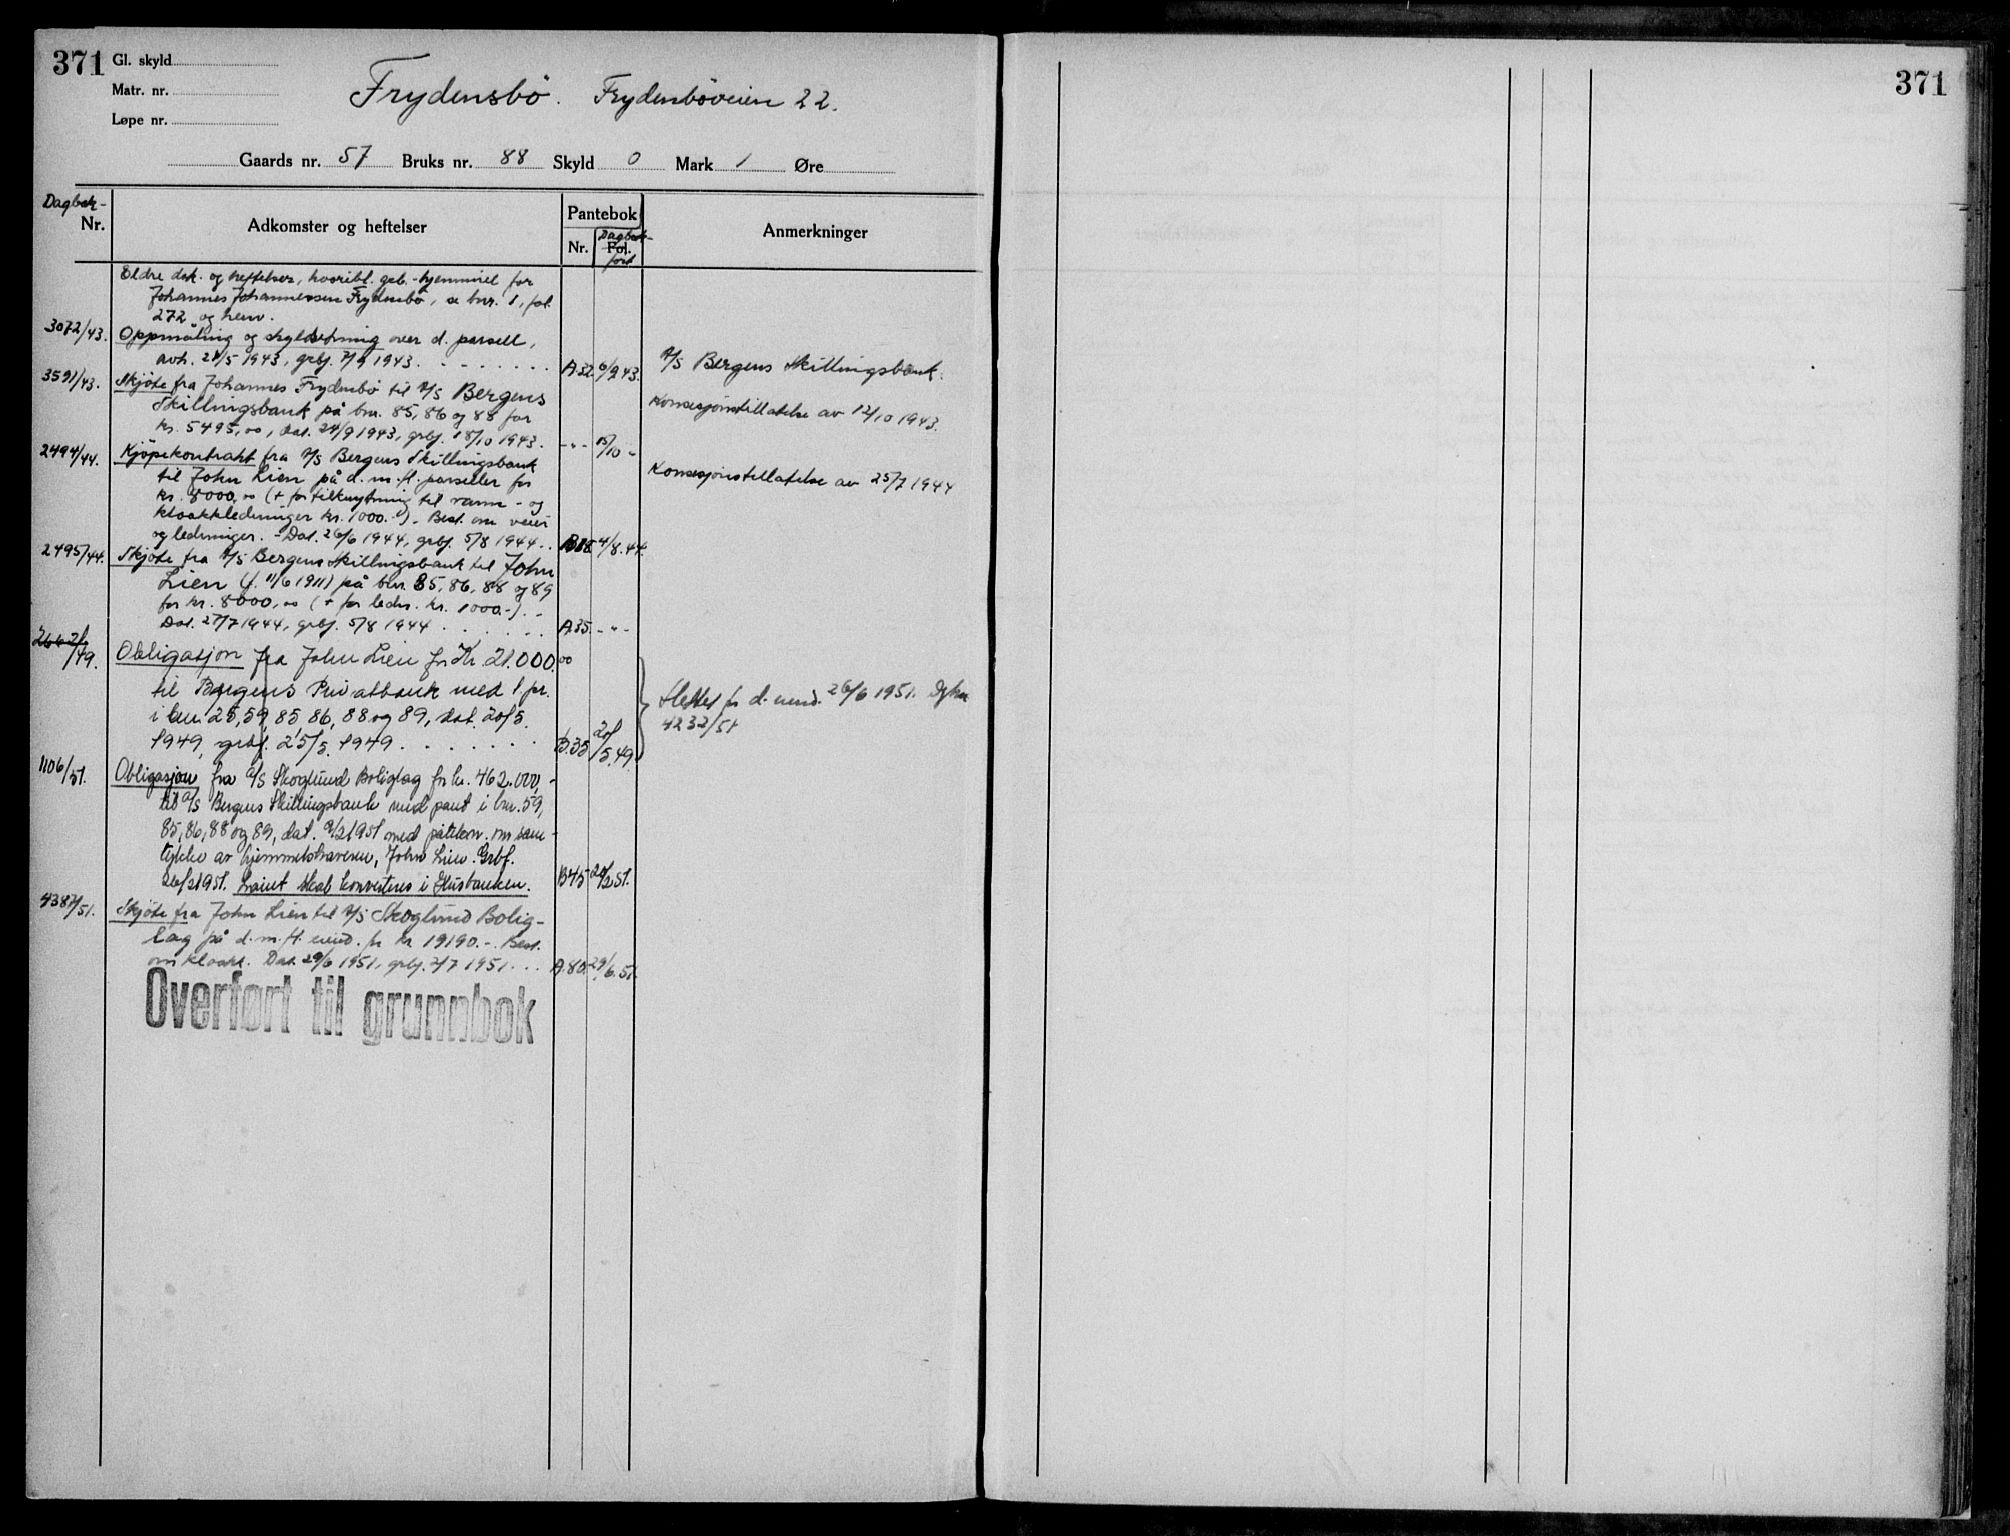 371
Gl. skyld
Matr. nr.
Løpe nr.
Frydensbø. Frydenbøveien 22.
Gaards nr. 57 Bruks nr. 88 Skyld 0 Mark 1 Øre
Dagbok-
Nr.
Adkomster og heftelser
Pantebok
Nr.
Dagbok-
Fol.
ført
Anmerkninger
Eldre dok. og heftelser, hvoribl. grb.-hjemmel for
Johannes Johannessen Frydenbø, se bnr. 1, fol.
272 og henv.
3072/43. Oppmåling og skyldsetning over d. parsell,
avh. 21/5 1943, grbf. 7/9 1943. A32. 6/9 43. A/S Bergens Skillingsbank.
3591/43. Skjøte fra Johannes Frydenbø til A/S Bergens
Skillingsbank på bnr. 85, 86 og 88 for
kr. 5495,00, Dat. 24/9 1943, grbf. 18/10 1943. -"- 15/10 - Konsesjonstillatelse av 12/10 1943.
2494/44. Kjøpekontrakt fra A/S Bergens Skillingsbank
til John Lien på d. m. fl. parseller for
kr. 8000,00 (+ for tilknytning til vann- og
kloakkledninger kr. 1000.-). Best. om veier
og ledninger. - Dat. 26/6 1944, grbf. 5/8 1944.. B18. 4/8.44. Konsesjonstillatelse av 25/7 1944
2495/44. Skjøte fra A/S Bergens Skillingsbank til John
Lien (f. 11/6 1911) på bnr. 85, 86, 88 og 89
for kr. 8000,00 (+ for ledn. kr. 1000.-). -
Dat. 27/7 1944, grbf. 5/8 1944 A.35. -"-
/49. Obligasjon fra John Lien for Kr. 21.000.00
til Bergens Privatbank med 1 pr.
i bnr. 25, 59, 85 86, 88 og 89, dat. 20/5.
1949, grbf. 25/5. 1949. B.35 20/5.49. Slettet for d. eiend. 26/6 1951. Dgbnr
4232/51
1106/51. Obligasjon fra A/S Skoglund Boliglag for kr. 462.000,-
til A/S Bergens Skillingsbank med pant i bnr. 59,
85, 86, 88 og 89, dat. 9/2 1951 med påtekn. om sam-
tykke av hjemmelshaveren, John Lien. Grbf.
26/2 1951. Lånet skal konverteres i Husbanken. B45 20/2 51.
4387/51. Skjøte fra John Lien til A/S Skoglund Bolig-
lag på d. m. fl. eiend. for kr 19190.-. Best.
om kloakk. Dat. 29/6 1951, grbf. 2/7 1951... A.80. 29/6.51.
Overført til grunnbok
371